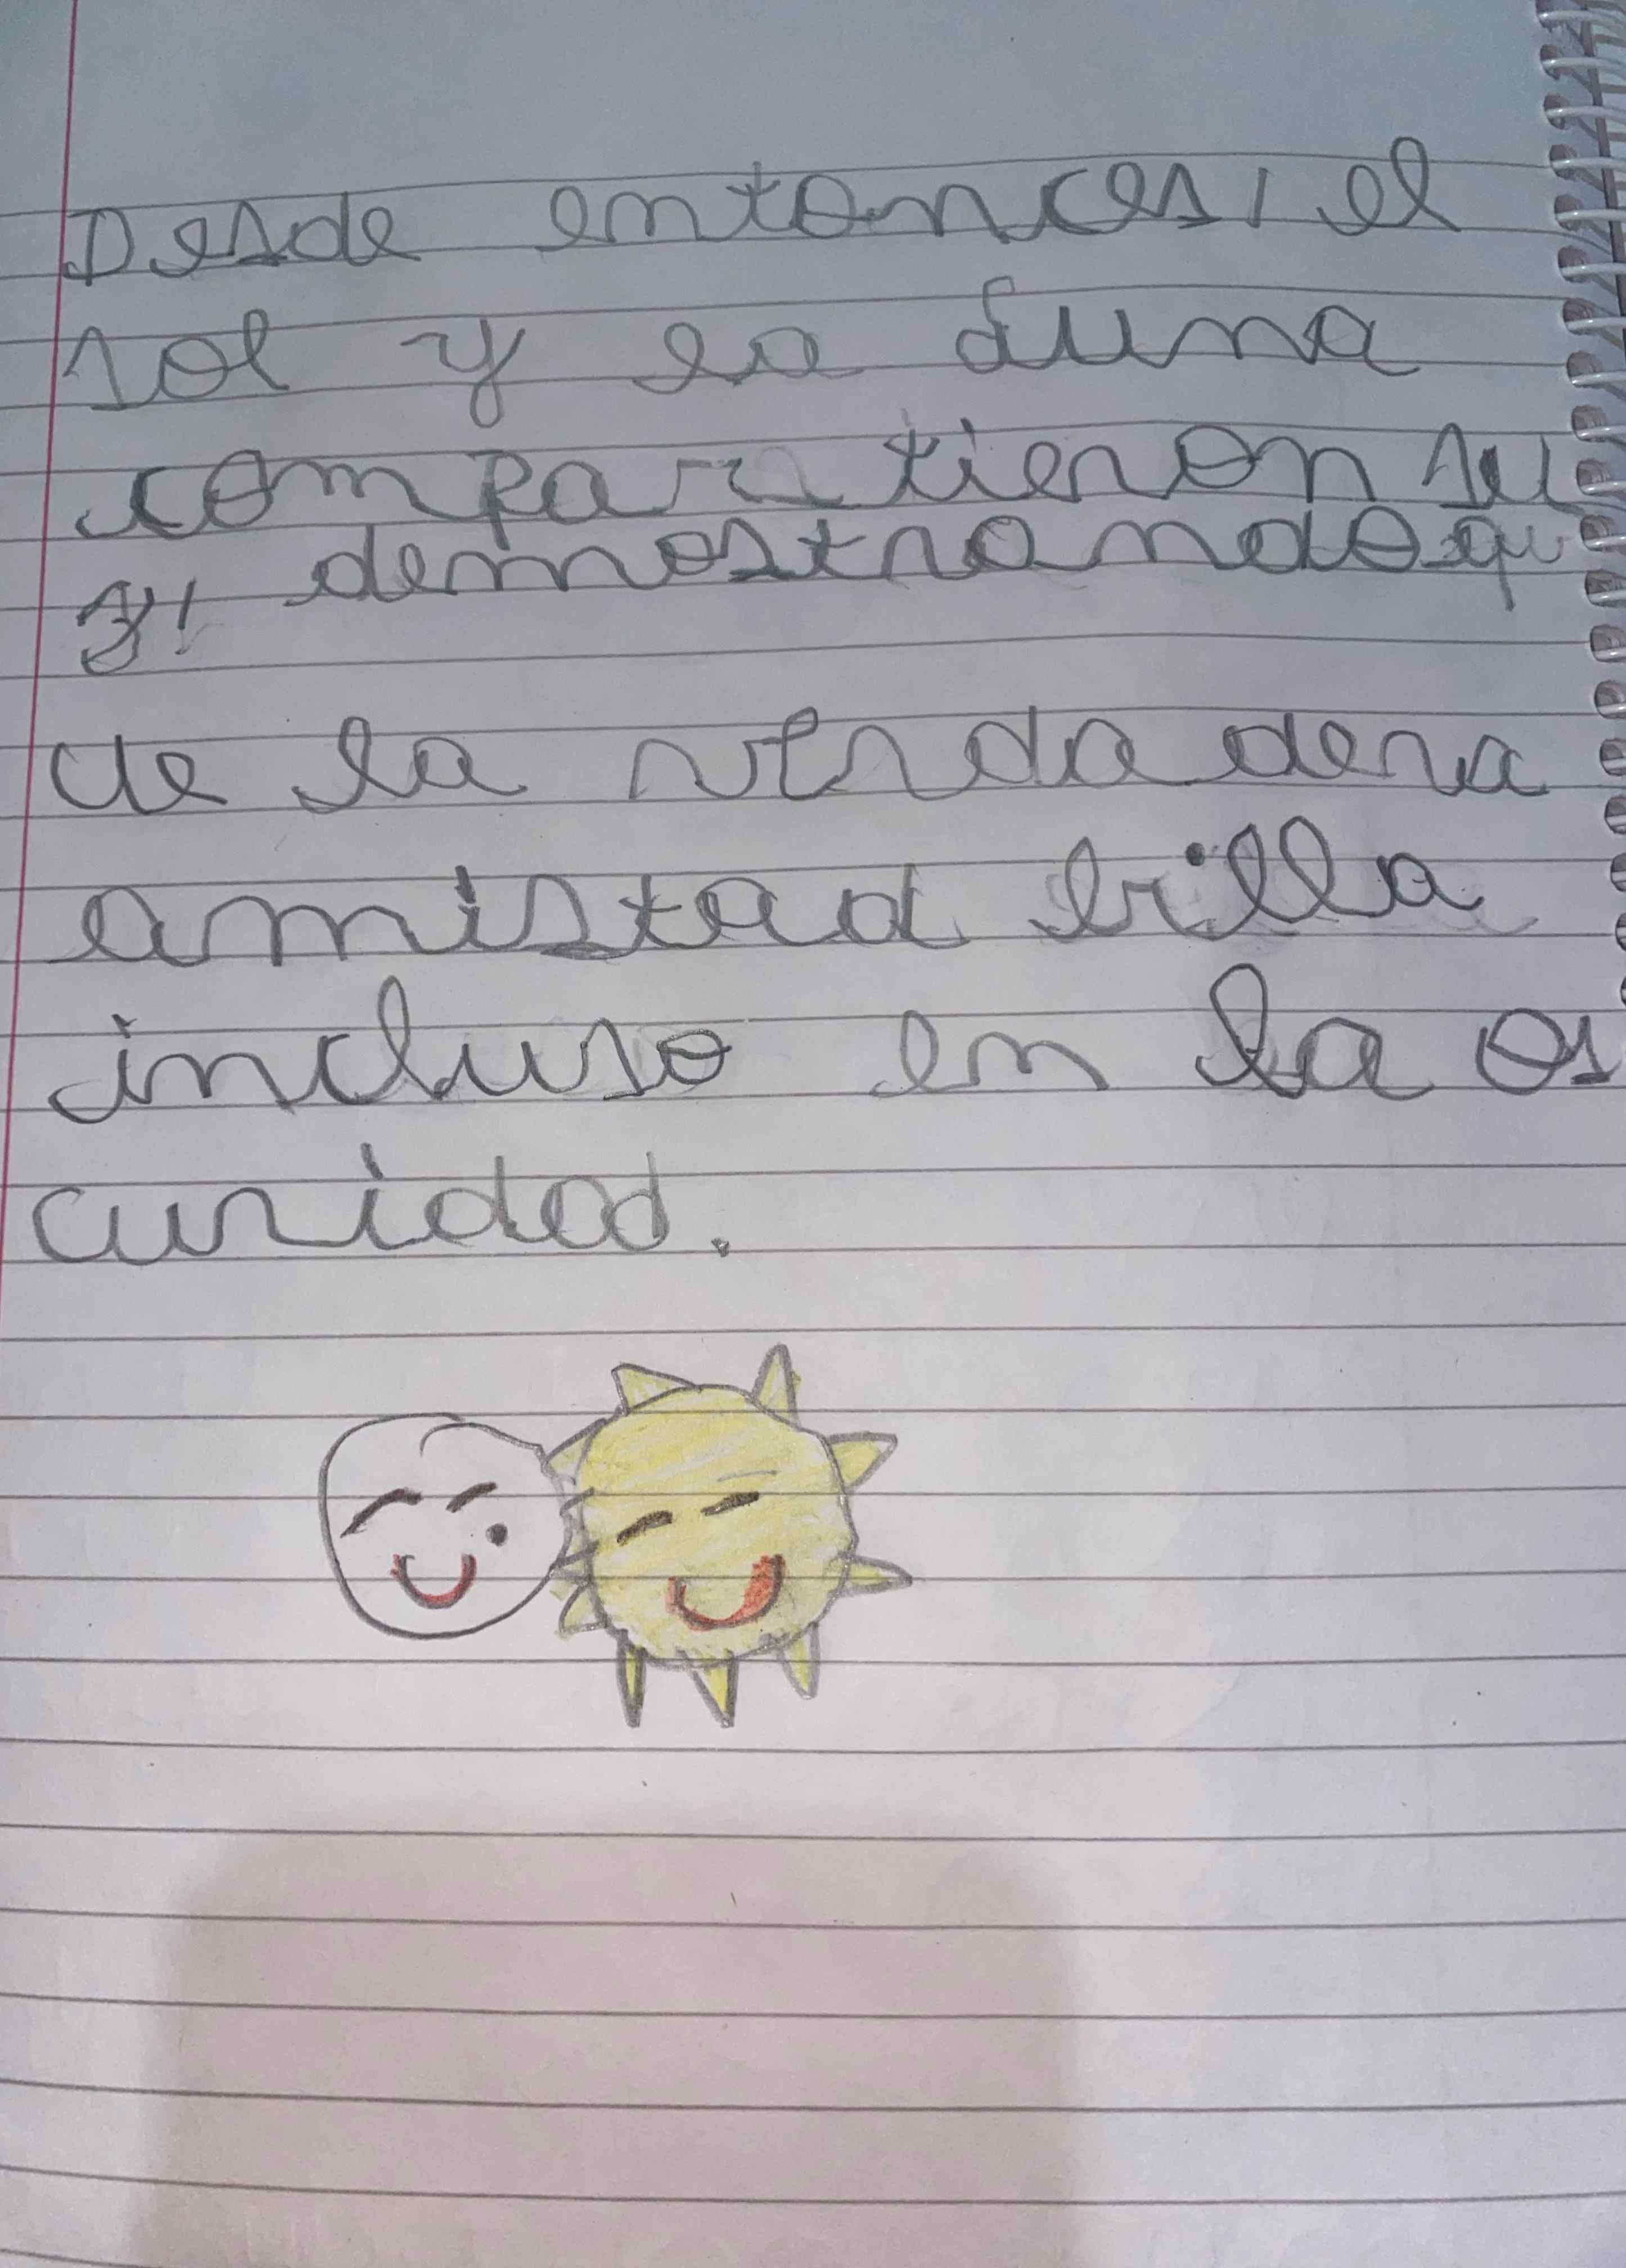 Desde entonces, el
sol y la Luna
compartieron su
z, demostrando qu
de la verdadera
amistad brilla
incluso en la os
curidad.